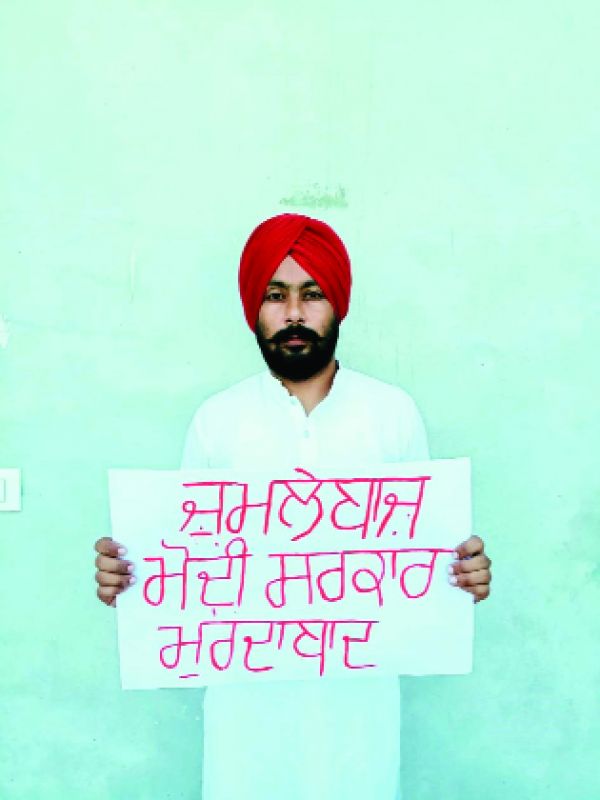 ਜੁਮਲੇਬਾਜ਼
ਮੋਦੀ ਸਰਕਾਰ
ਮੁਰਦਾਬਾਦ